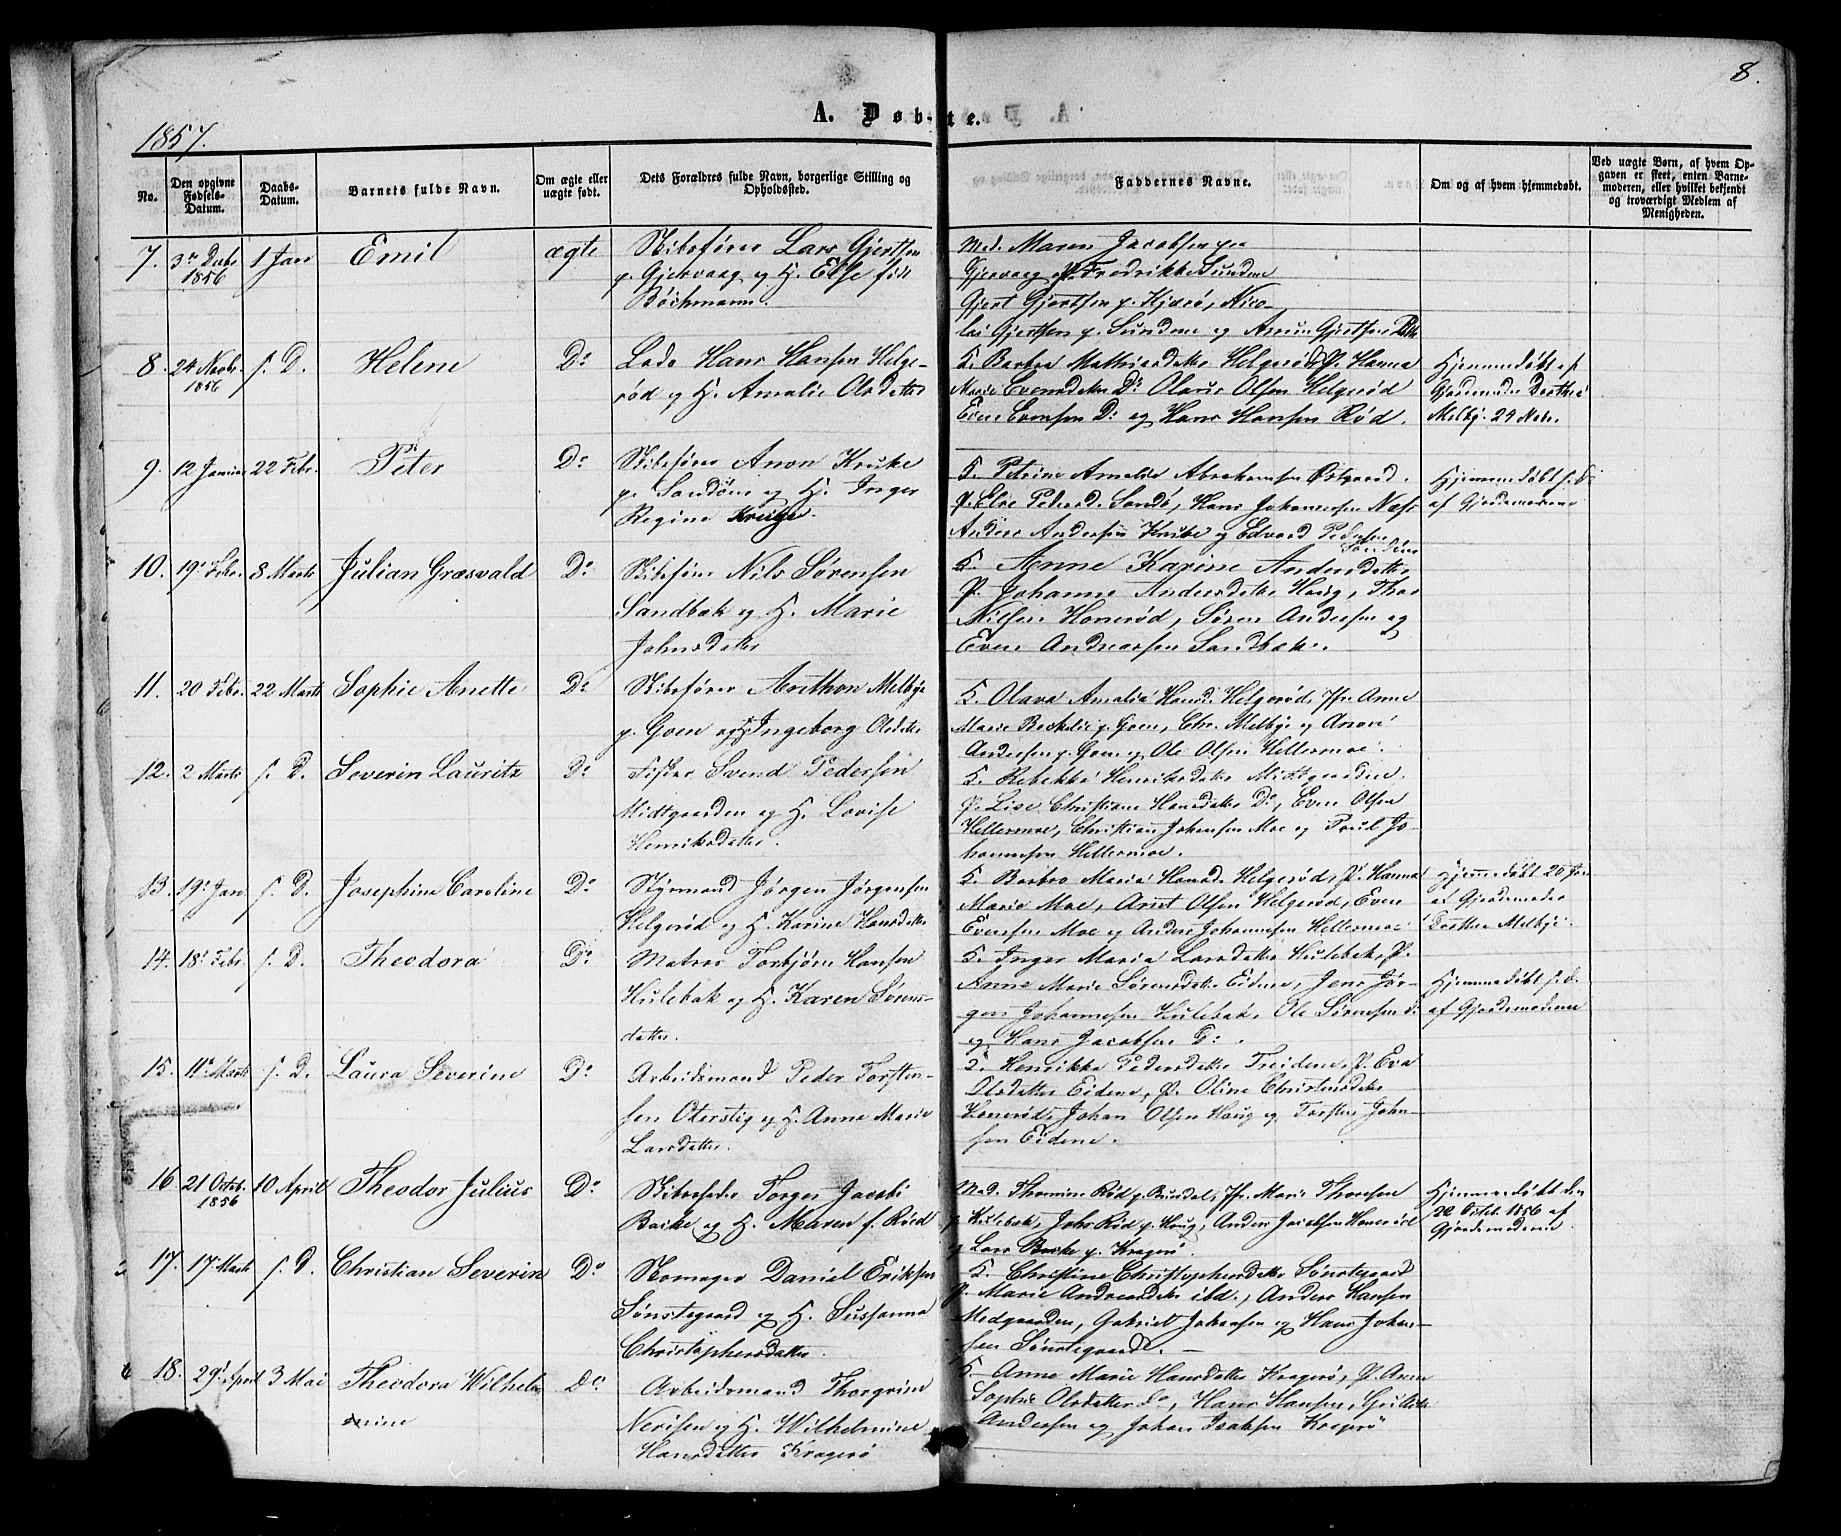 8.
A. Døbte.
1857.
No.
Den opgivne Fødsels-Datum.
Daabs-Datum.
Barnets fulde Navn.
Om ægte eller uægte født.
Dets Forældres fulde Navn, borgerlige Stilling og Opholdssted.
Faddernes Navne.
Om og af hvem hjemmedøbt.
Ved uægte Børn, af hvem Op-
gaven er skeet, enten Barne-
moderen, eller hvilket bekjendt
og troværdigt Medlem af
Menigheden.
7. 3 Decbr 1856 1 Jan Emil ægte
Skibsfører Lars Gjertsen
p. Gjervaag og H. Else født
Böckmann.
Mad. Maren Jacobsen
Gjervaag, Fredrikke Sundene
Gjert Gjertsen p. Nico-
lai Gjertsen p. Sundene og Gjertsen
8. 24 Novbr. 1856 s. D. Helene Do
Lods Hans Hansen Helge-
rød og H. Amalie Olsdatter
K. Barbra Mathisdatter Helgerød, P. Hanna
Marie Evensdatter Do Olaus Olsen Helgerød
Even Evensen Do og Hans Hansen Rød.
Hjemmedøbt af
Gjordemoder Dorthea
Melby. 29 Novbr.
9. 12 Januar 22 Febr. Peter Do
Skibsfører Anon Kruke
p. Sandøen og H. Inger
Regine Kruge.
K. Petrine Amalie Abrahamsen Østgaard.
P. Else Pedersd. Sandö, Hans Johannesen Næs
Anders Andersen Kruke og Edvard Pedersen
Sandöen
Hjemmedøbt s. D.
af Gjordemoderen
10. 19 Febr. 8 Marts Julian Grasvald Do
Skibsfører Nils Sörensen
Sandbak og H. Marie
Johnsdatter
K. Anne Karine Andersdatter
P. Johanne Andersdatter Haug, Thor
Nilsen Honerød, Sören Andersen og
Even Andreassen Sandbak.
11. 20 Febr. 22 Marts Sophie Anette Do
Skibsfører Anthon Melbye
p. Goen og H. Ingeborg Olsdatter
K. Olava Amalia Hansd. Helgerød, Jfr. Anne
Marie p. Goen, Chr. Melbye og
Andersen p. Goen og Ole Olsen Hellermoe.
12. 2 Marts s. D. Severin Lauritz Do
Fisker Svend Pedersen
Midtgaarden og H. Lovise
Henriksdatter.
K. Rebekka Henriksdatter Midtgaarden.
P. Lise Christiane Hansdatter Do, Even Olsen
Hellermoe, Christian Johansen Moe og Poul Jo-
hannesen Hellermoe.
13. 19 Jan s. D. Josephine Caroline Do
Styrmand Jørgen Jørgensen
Helgerød og H. Karine Hansdatter
K. Barbro Maria Hansd. Helgerød, P. Hanna
Marie Moe, Arnt Olsen Helgerød, Even
Evensen Moe og Anders Johannesen Hellermoe
Hjemmedøbt 20 Jan
af Gjordemoder
Dorthea Melbye.
14. 18 Febr. s. D. Theodora Do
Matros Torbjörn Hansen
Hulebak og H. Karen Sörens-
datter.
K. Inger Maria Larsdatter Hulebak, P.
Anne Marie Sörensdatter Eidene, Jens Jör-
gen Johannesen Hulebak, Ole Sörensen do
og Hans Jacobsen Do.
Hjemmedøbt s. D.
af Gjordemoderen
15. 11 Marts s. D. Laura Severine Do
Arbeidsmand Peder Torsten-
sen Oterstig og H. Anne Marie
Larsdatter.
K. Henrikke Pedersdatter Treidene, P. Eva
Olsdatter Eidene, P. Oline Christensdatter
Honerød, Johan Olsen Haug og Torsten John-
sen Eidene.
16 21 Octob. 1856 10 April Theodor Julius Do
Skibsreder Torger Jacobi
Bache og H. Maren f. Röed
Mad. Thomine Röd p. Jfr. Marie Thoresen
p. Hulebak, Johs Röd p. Haug, Anders Jacobsen Honeröd
og Lars Bache p. Kragerø.
Hjemmedøbt den
22 Octob. 1856 af
Gjordemoderen.
17. 17 Marts s. D. Christian Severin Do
Skomager Daniel Eriksen
Sönstegaard og H. Susanna
Christophersdatter.
K. Christine Christophersdatter Sönstegaard
P. Marie Andreasdatter ibd., Anders Hansen
Medgaarden, Gabriel Johansen og Hans Johan-
sen Sönstegaard.
18. 29 April 3 Mai Theodora Wilhel-
mine Do
Arbeidsmand Thorgrim
Nerisen og H. Wilhelmine
Hansdatter Kragerø
K. Anne Marie Hansdatter Kragerø, P. Anne
Sophie Olsdatter do, Hans Hansen,
Andersen og Johan Isaksen Kragerö